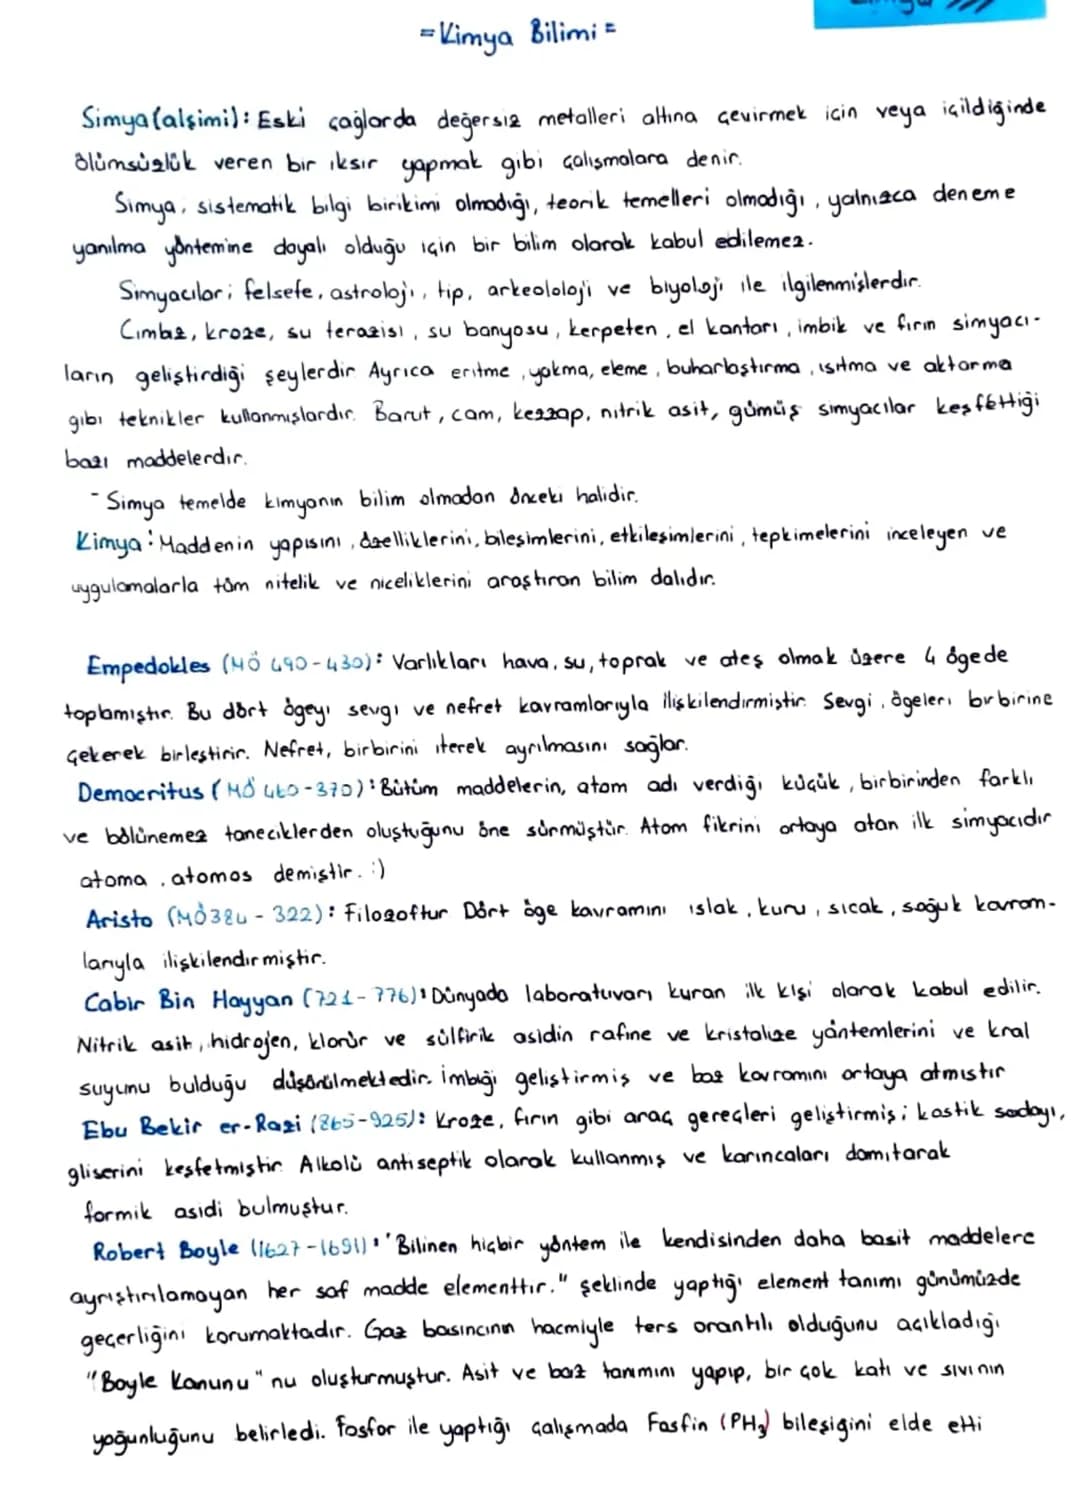 =Kimya Bilimi=
Simya(alşimi): Eski çağlarda değersiz metalleri altına çevirmek için veya içildiğinde
ölümsüzlük veren bir iksir yapmak gibi çalışmalara denir.
Simya, sistematik bilgi birikimi olmadığı, teorik temelleri olmadığı, yalnızca deneme
yanılma yöntemine dayalı olduğu için bir bilim olarak kabul edilemez.
Simyacılar; felsefe, astroloji, tip, arkeololoji ve biyoloji ile ilgilenmişlerdir.
Cımbız, kroze, su terazisi, su banyosu, kerpeten, el kantarı, imbik ve fırın simyacı-
ların geliştirdiği şeylerdir. Ayrıca eritme, yakma, eleme, buharlaştırma, ısıtma ve aktarma
gibi teknikler kullanmışlardır. Barut, cam, kezzap, nitrik asit, gümüş simyacılar keşfettiği
bazı maddelerdir.
- Simya temelde kimyanın bilim olmadan önceki halidir.
Kimya: Maddenin yapısını, özelliklerini, bileşimlerini, etkileşimlerini, tepkimelerini inceleyen ve
uygulamalarla tüm nitelik ve niceliklerini araştıran bilim dalıdır.
Empedokles (MÖ 490-430): Varlıkları hava, su, toprak ve ateş olmak üzere 4 ögede
toplamıştır. Bu dört ögeyi sevgi ve nefret kavramlarıyla ilişkilendirmiştir. Sevgi, ögeleri birbirine
çekerek birleştirir. Nefret, birbirini iterek ayrılmasını sağlar.
Democritus (MÖ 460-370): Bütüm maddelerin, atom adı verdiği küçük, birbirinden farklı
ve bölünemez taneciklerden oluştuğunu öne sürmüştür. Atom fikrini ortaya atan ilk simyacıdır
atoma, atomos demiştir. :)
Aristo (MÖ384 - 322): Filozoftur. Dört öge kavramını ıslak, kuru, sıcak, soğuk kavram-
larıyla ilişkilendirmiştir.
Cabir Bin Hayyan (721-776): Dünyada laboratuvarı kuran ilk kişi olarak kabul edilir.
Nitrik asit, hidrojen, klorür ve sülfirik asidin rafine ve kristalize yöntemlerini ve kral
suyunu bulduğu düşünülmektedir. İmbiği geliştirmiş ve baz kavramını ortaya atmıştır
Ebu Bekir er-Razi (865-925): Kroze, fırın gibi araç gereçleri geliştirmiş; kostik sodayı,
gliserini keşfetmiştir. Alkolü antiseptik olarak kullanmış ve karıncaları damıtarak
formik asidi bulmuştur.
Robert Boyle (1627-1691): "Bilinen hiçbir yöntem ile kendisinden daha basit maddelere
ayrıştırılamayan her saf madde elementtir." şeklinde yaptığı element tanımı günümüzde
geçerliğini korumaktadır. Gaz basıncının hacmiyle ters orantılı olduğunu açıkladığı
"Boyle Kanunu" nu oluşturmuştur. Asit ve baz tanımını yapıp, bir çok katı ve sıvının
yoğunluğunu belirledi. Fosfor ile yaptığı çalışmada Fosfin (PH₃) bileşiğini elde etti